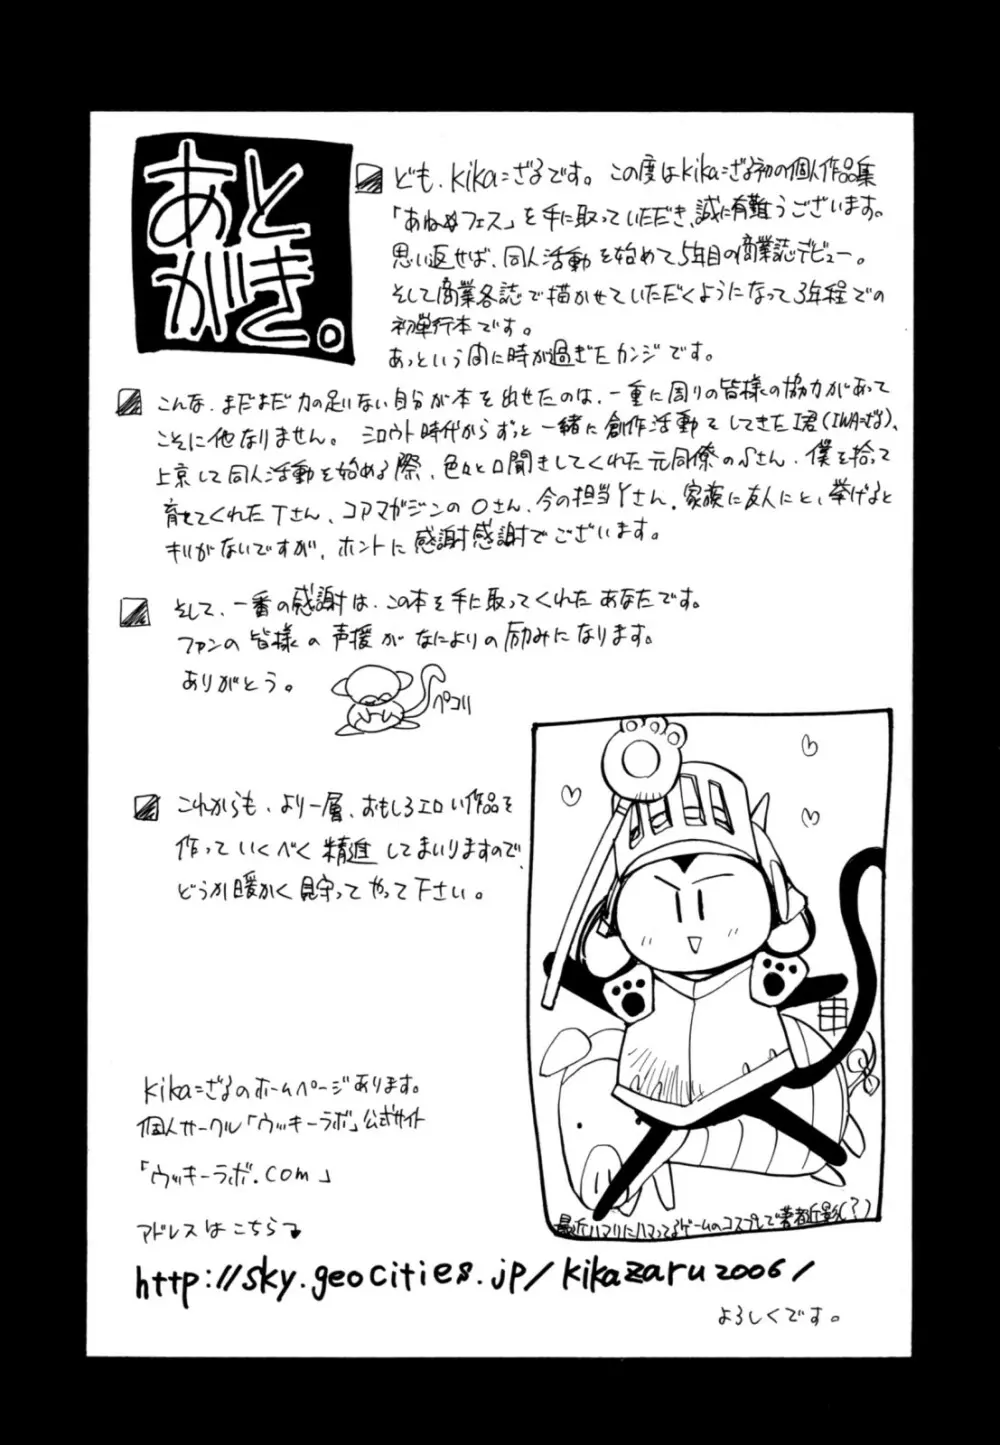 あと
がき。
ども、kika=ざるです。この度はkika=ざる初の個人作品集
「あねヌフェス」を手に取っていただき、誠に有難うございます。
思い返せば、同人活動を始めて5年目の商業誌デビュー。
そして商業各誌で描かせていただくようになって3年程での
初単行本です。
あっという間に時が過ぎたカンジです。
こんな、まだまだ力の足りない自分が本を出せたのは、一重に周りの皆様の協力があって
ことに他なりません。シロウト時代からずっと一緒に創作活動をしてきたI君(IWA=ざる)、
上京して同人活動を始める際、色々と口聞きしてくれた元同僚のSさん、僕を拾って
育ててくれたTさん、コアマガジンのOさん、今の担当Yさん、家族に友人にと、挙げると
キリがないですが、ホントに感謝感謝でございます。
そして、一番の感謝は、この本を手に取ってくれたあなたです。
ファンの皆様の声援がなによりの励みになります。
ありがとう。
ペコリ
これからも、より一層、おもしろエロい作品を
作っていくべく精進してまいりますので、
どうか暖かく見守ってやって下さい。
申
最近ハマりにハマってるゲームのコスプレで著者近影(?)
kika=ざるのホームページあります。
個人サークル「ウッキーラボ」公式サイト
「ウッキーラボ.com」
アドレスはこちら
http://sky.geocities.jp/kikazaru2006/
よろしくです。